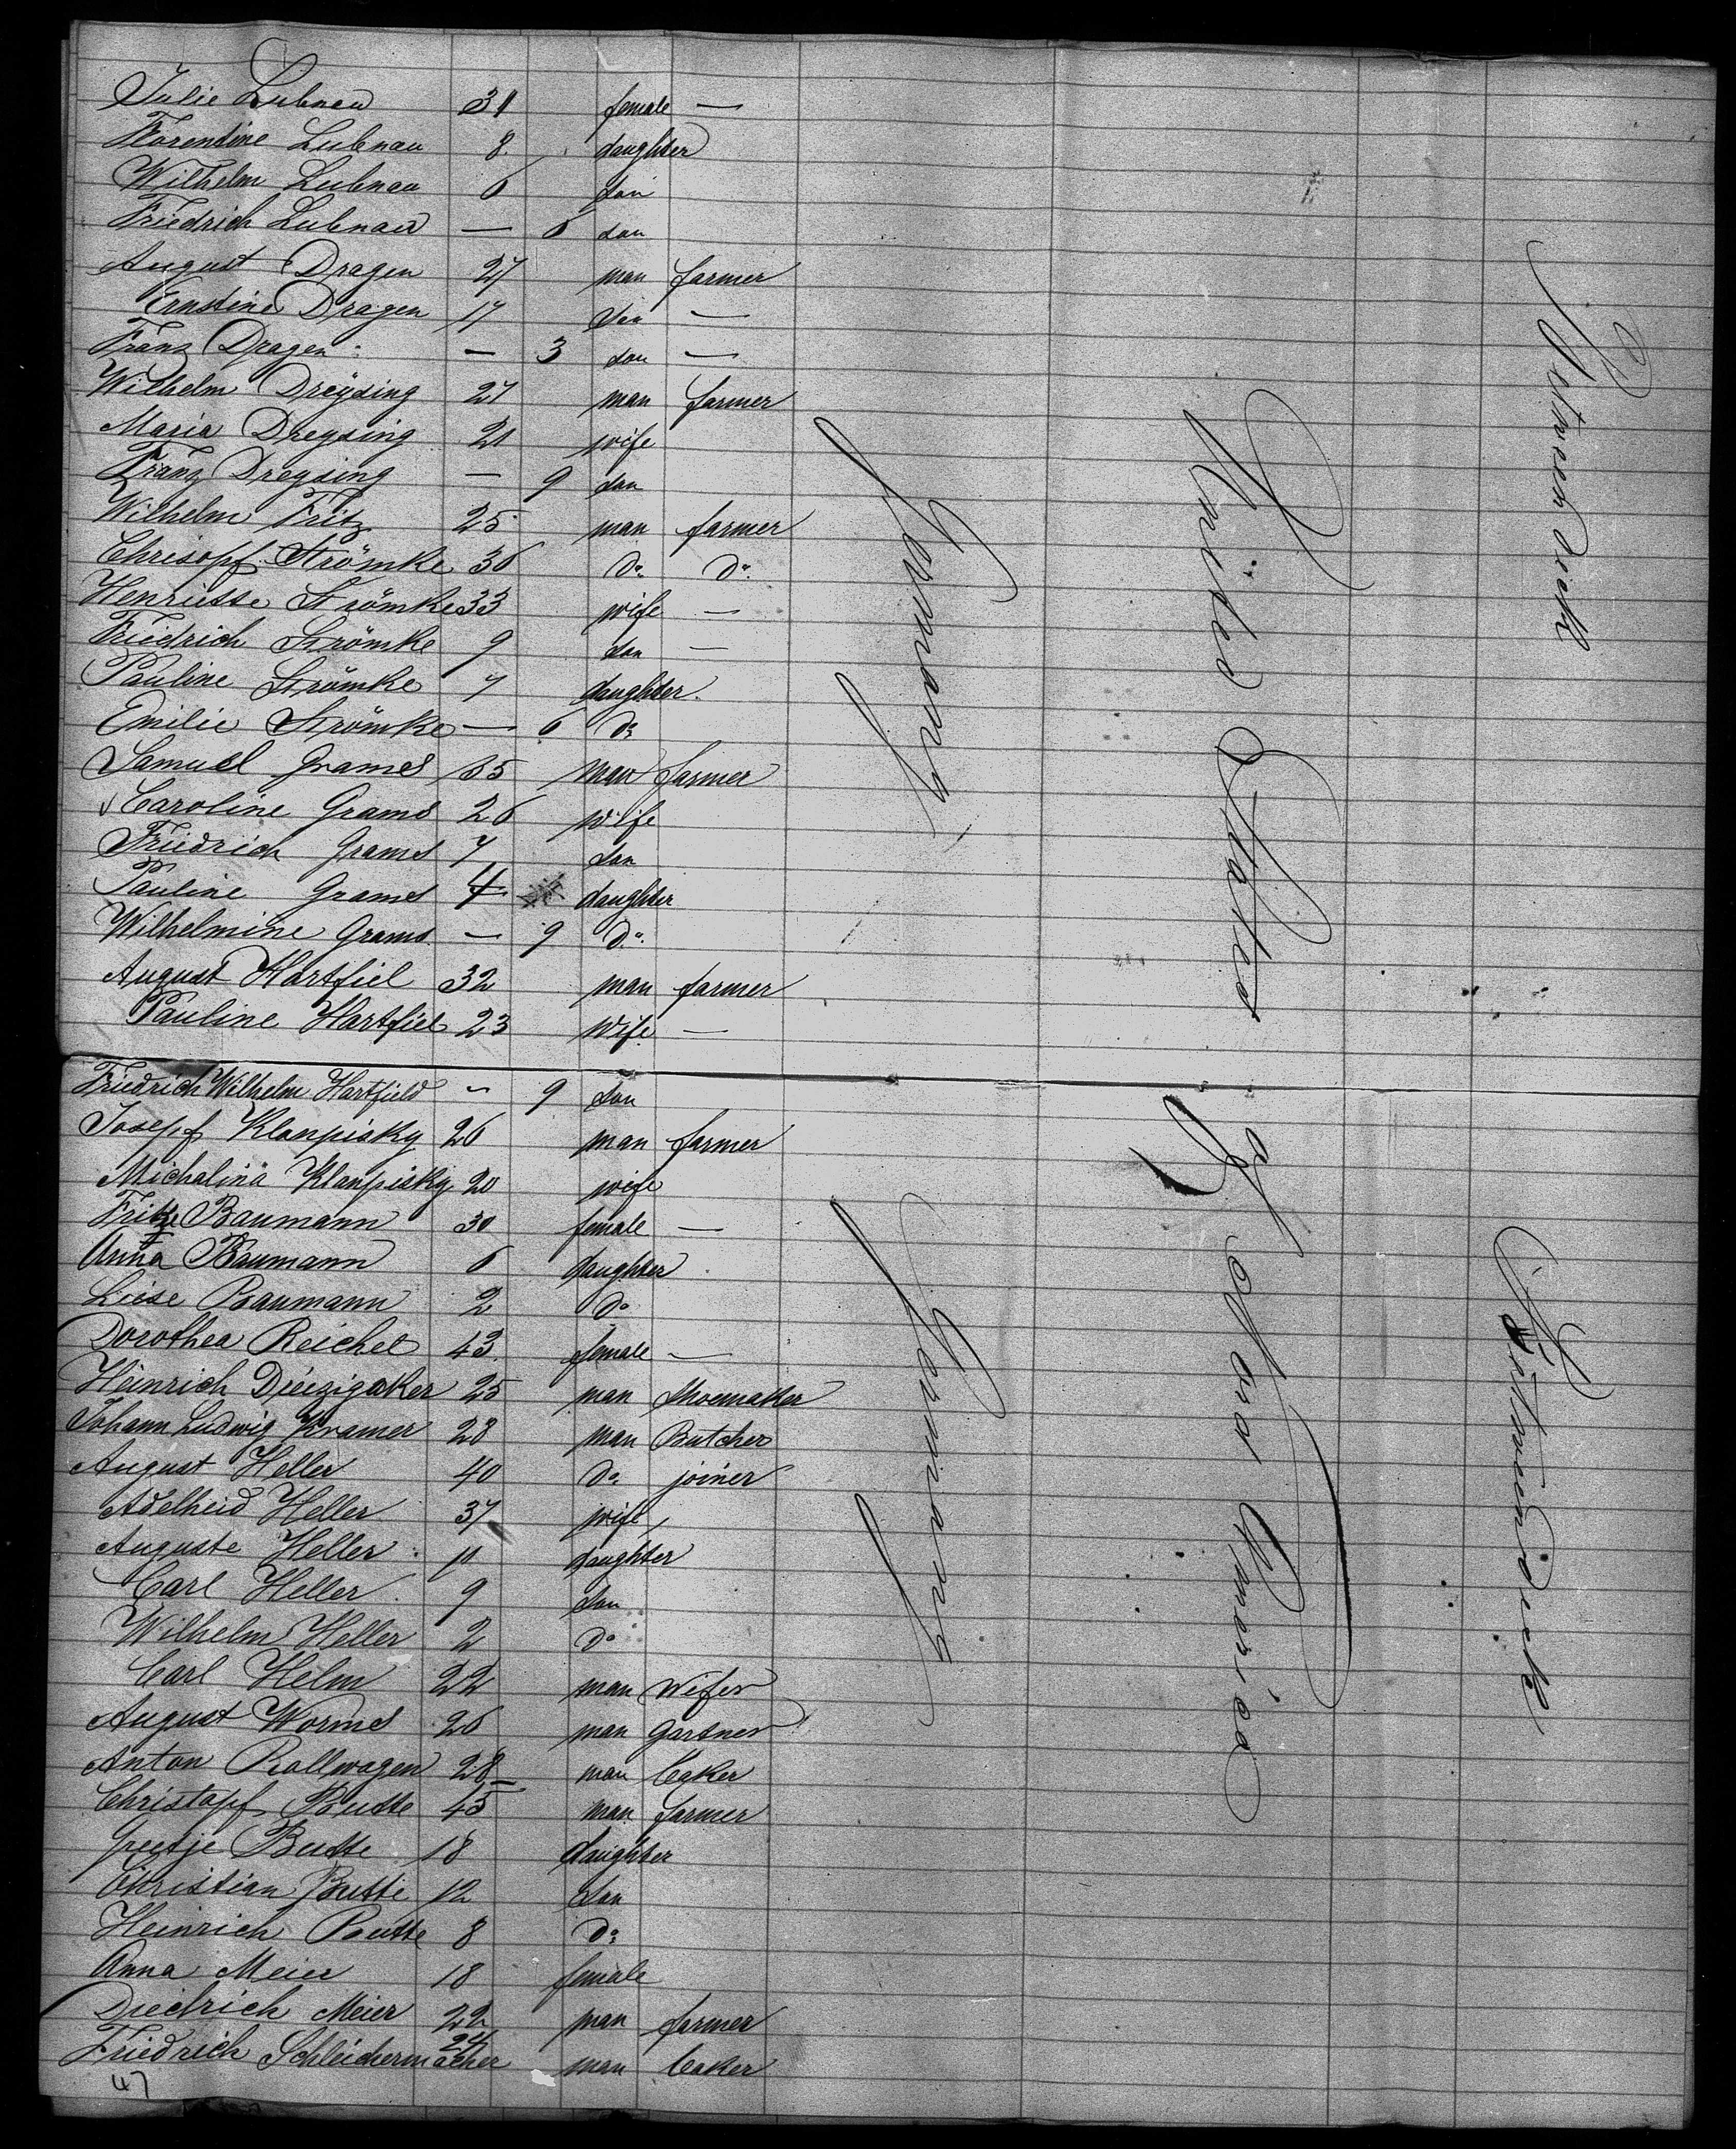 Julie Lubnau 31 female —
Florentine Lubnau 8 daughter
Wilhelm Lubnau 6 son
Friedrich Lubnau — 6 son
August Dragen 27 man farmer
Ernstine Dragen 17 son —
Franz Dragen — 3 son —
Wilhelm Dreÿsing 27 man farmer
Maria Dreysing 21 wife
Franz Dreysing — 9 son
Wilhelm Fritz 25 man farmer
Chrisopf Strömke 36 do. do.
Henriette Strömke 33 wife —
Friedrich Strömke 9 son —
Pauline Strömke 7 daughter.
Emilie Strömke — 6 do
Samuel Grames 35 man farmer
Caroline Grams 26 wife
Friedrich Grams 7 son
Pauline Grams 4 daughter
Wilhelmine Grams — 9 do.
August Hartfiel 32 man farmer
Pauline Hartfiel 23 wife —
Friedrich Wilhelm Hartfield — 9 son
Josepf Klanpisky 26 man farmer
Michalina Klanpisky 20 wife
Fritze Baumann 30 female —
Anna Baumann 6 daughter
Liese Baumann 2 do
Dorothea Reichel 43 female —
Heinrich Dreizigaker 25 man Shoemaker
Johann Ludwig Kramer 28 man Butcher
August Heller 40 do joiner
Adelheid Heller 37 wife
Auguste Heller 11 daughter
Carl Heller 9 son
Wilhelm Heller 2 do
Carl Helm 22 man Wifer
August Worms 26 man Gartner
Anton Rollwagen 28 man baker
Christopf Butte 45 man farmer
Geetje Butte 18 daughter
Christian Butte 12 son
Heinrich Butte 8 do
Anna Meier 18 female
Diedrich Meier 22 man farmer
Friedrich Schleichermacher 24 man baker
47
Germany
Germany
United States
of North America
Between deck
Between deck